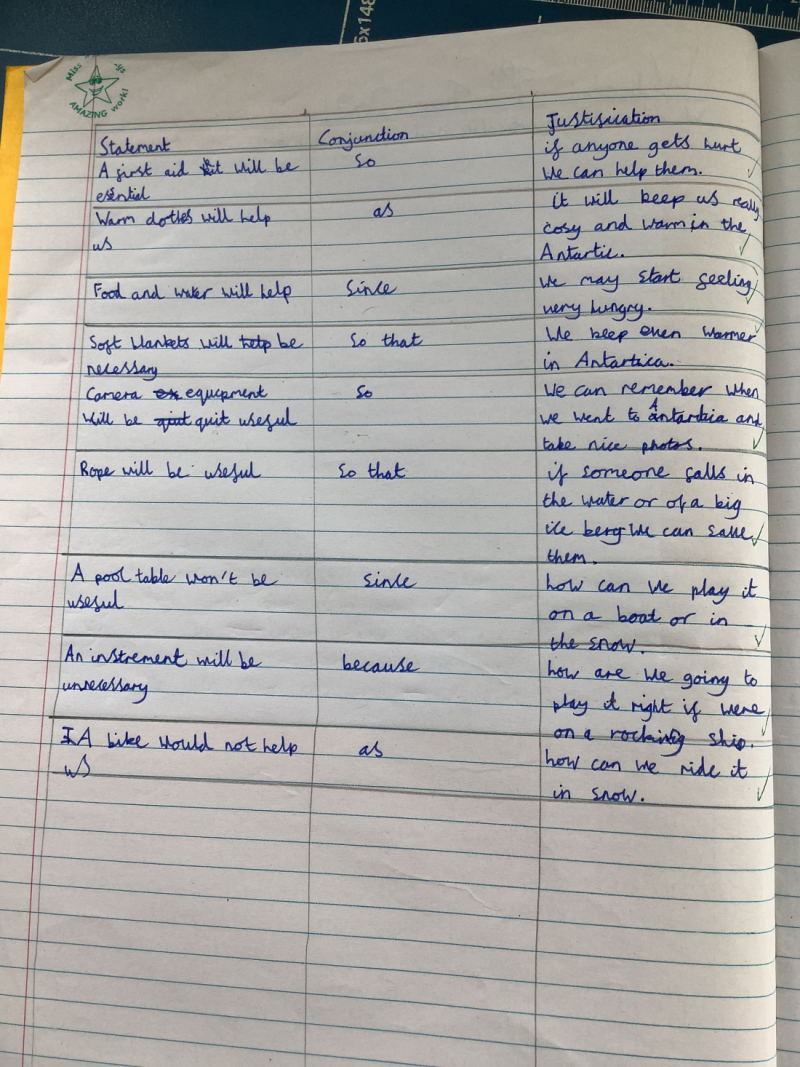 AMAZING work!
Statement Conjunction Justisication
A first aid kit will be So if anyone gets hurt
esential we can help them.
Warm clothes will help as it will keep us really
us cosy and warm in the
Antartic.
Food and water will help Since We may start feeling
very hungry.
Soft blankets will help be So that We keep even warmer
necessary in Antartica.
Camera equipment So We can remember when
Will be quit useful we went to Antartica and
take nice photos.
Rope will be useful So that if someone falls in
the water or of a big
ice berg we can save
them.
A pool table won't be since how can we play it
useful on a boat or in
the snow.
An instrement will be because how are we going to
unnecessary play it right if were
on a rocking ship.
A bike would not help as how can we ride it
us in snow.